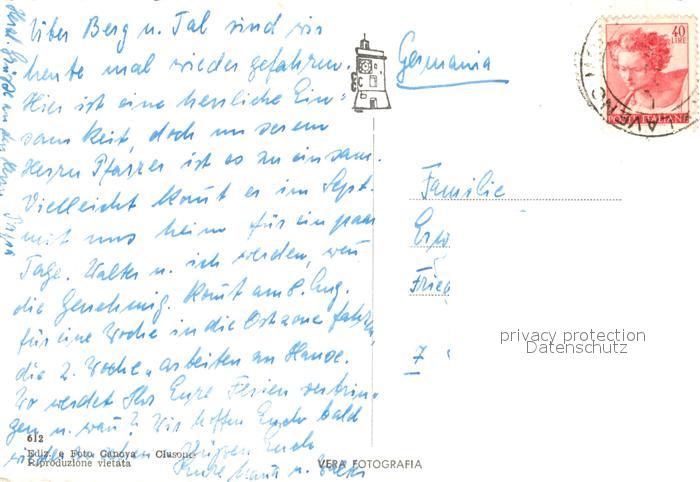 Über Berg u. Tal sind wir
heute mal wieder gefahren.
Hier ist eine herrliche Ein-
samkeit, doch unserem
Herrn Pfarrer ist es zu einsam.
Vielleicht kommt er im Sept.
mit uns heim für ein paar
Tage. Walter u. ich werden, wenn
die Genehmig. kommt am 8. Aug.
für eine Woche in die Ostzone fahren,
die 2. Woche arbeiten am Hause.
Wo werdet Ihr Eure Ferien verbrin-
gen u. wann? Wir hoffen Euch bald
wieder zu sehen Grüssen Euch
Eure u.
Herzl. Grüsse an den Herrn
Germania
40
LIRE
POSTE ITALIANE
Familie
Erw
Fried
7
privacy protection
Datenschutz
612
Ediz. e Foto Canova - Clusone
Riproduzione vietata
VERA FOTOGRAFIA